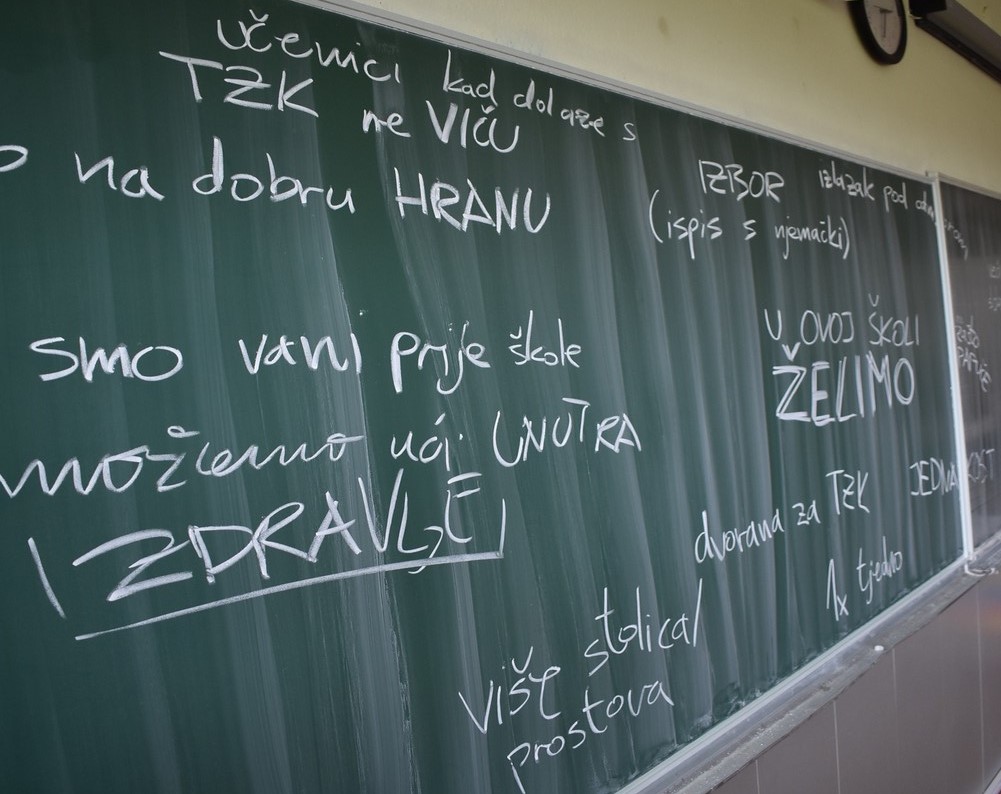 učenici kad dolaze s
TZK ne VIČU
na dobru HRANU
smo vani prije škole
možemo ući UNUTRA
ZDRAVLJE
IZBOR izlazak pod odmorom
(ispis s njemački)
U OVOJ ŠKOLI
ŽELIMO
dvorana za TZK
JEDNAKOST
1x tjedno
više stolica/
prostova